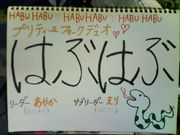 HABU HABU ♡ HABU HABU ♡ HABU HABU
プリティーフォークデュオ
はぶはぶ
リーダー あやか サブリーダー えり